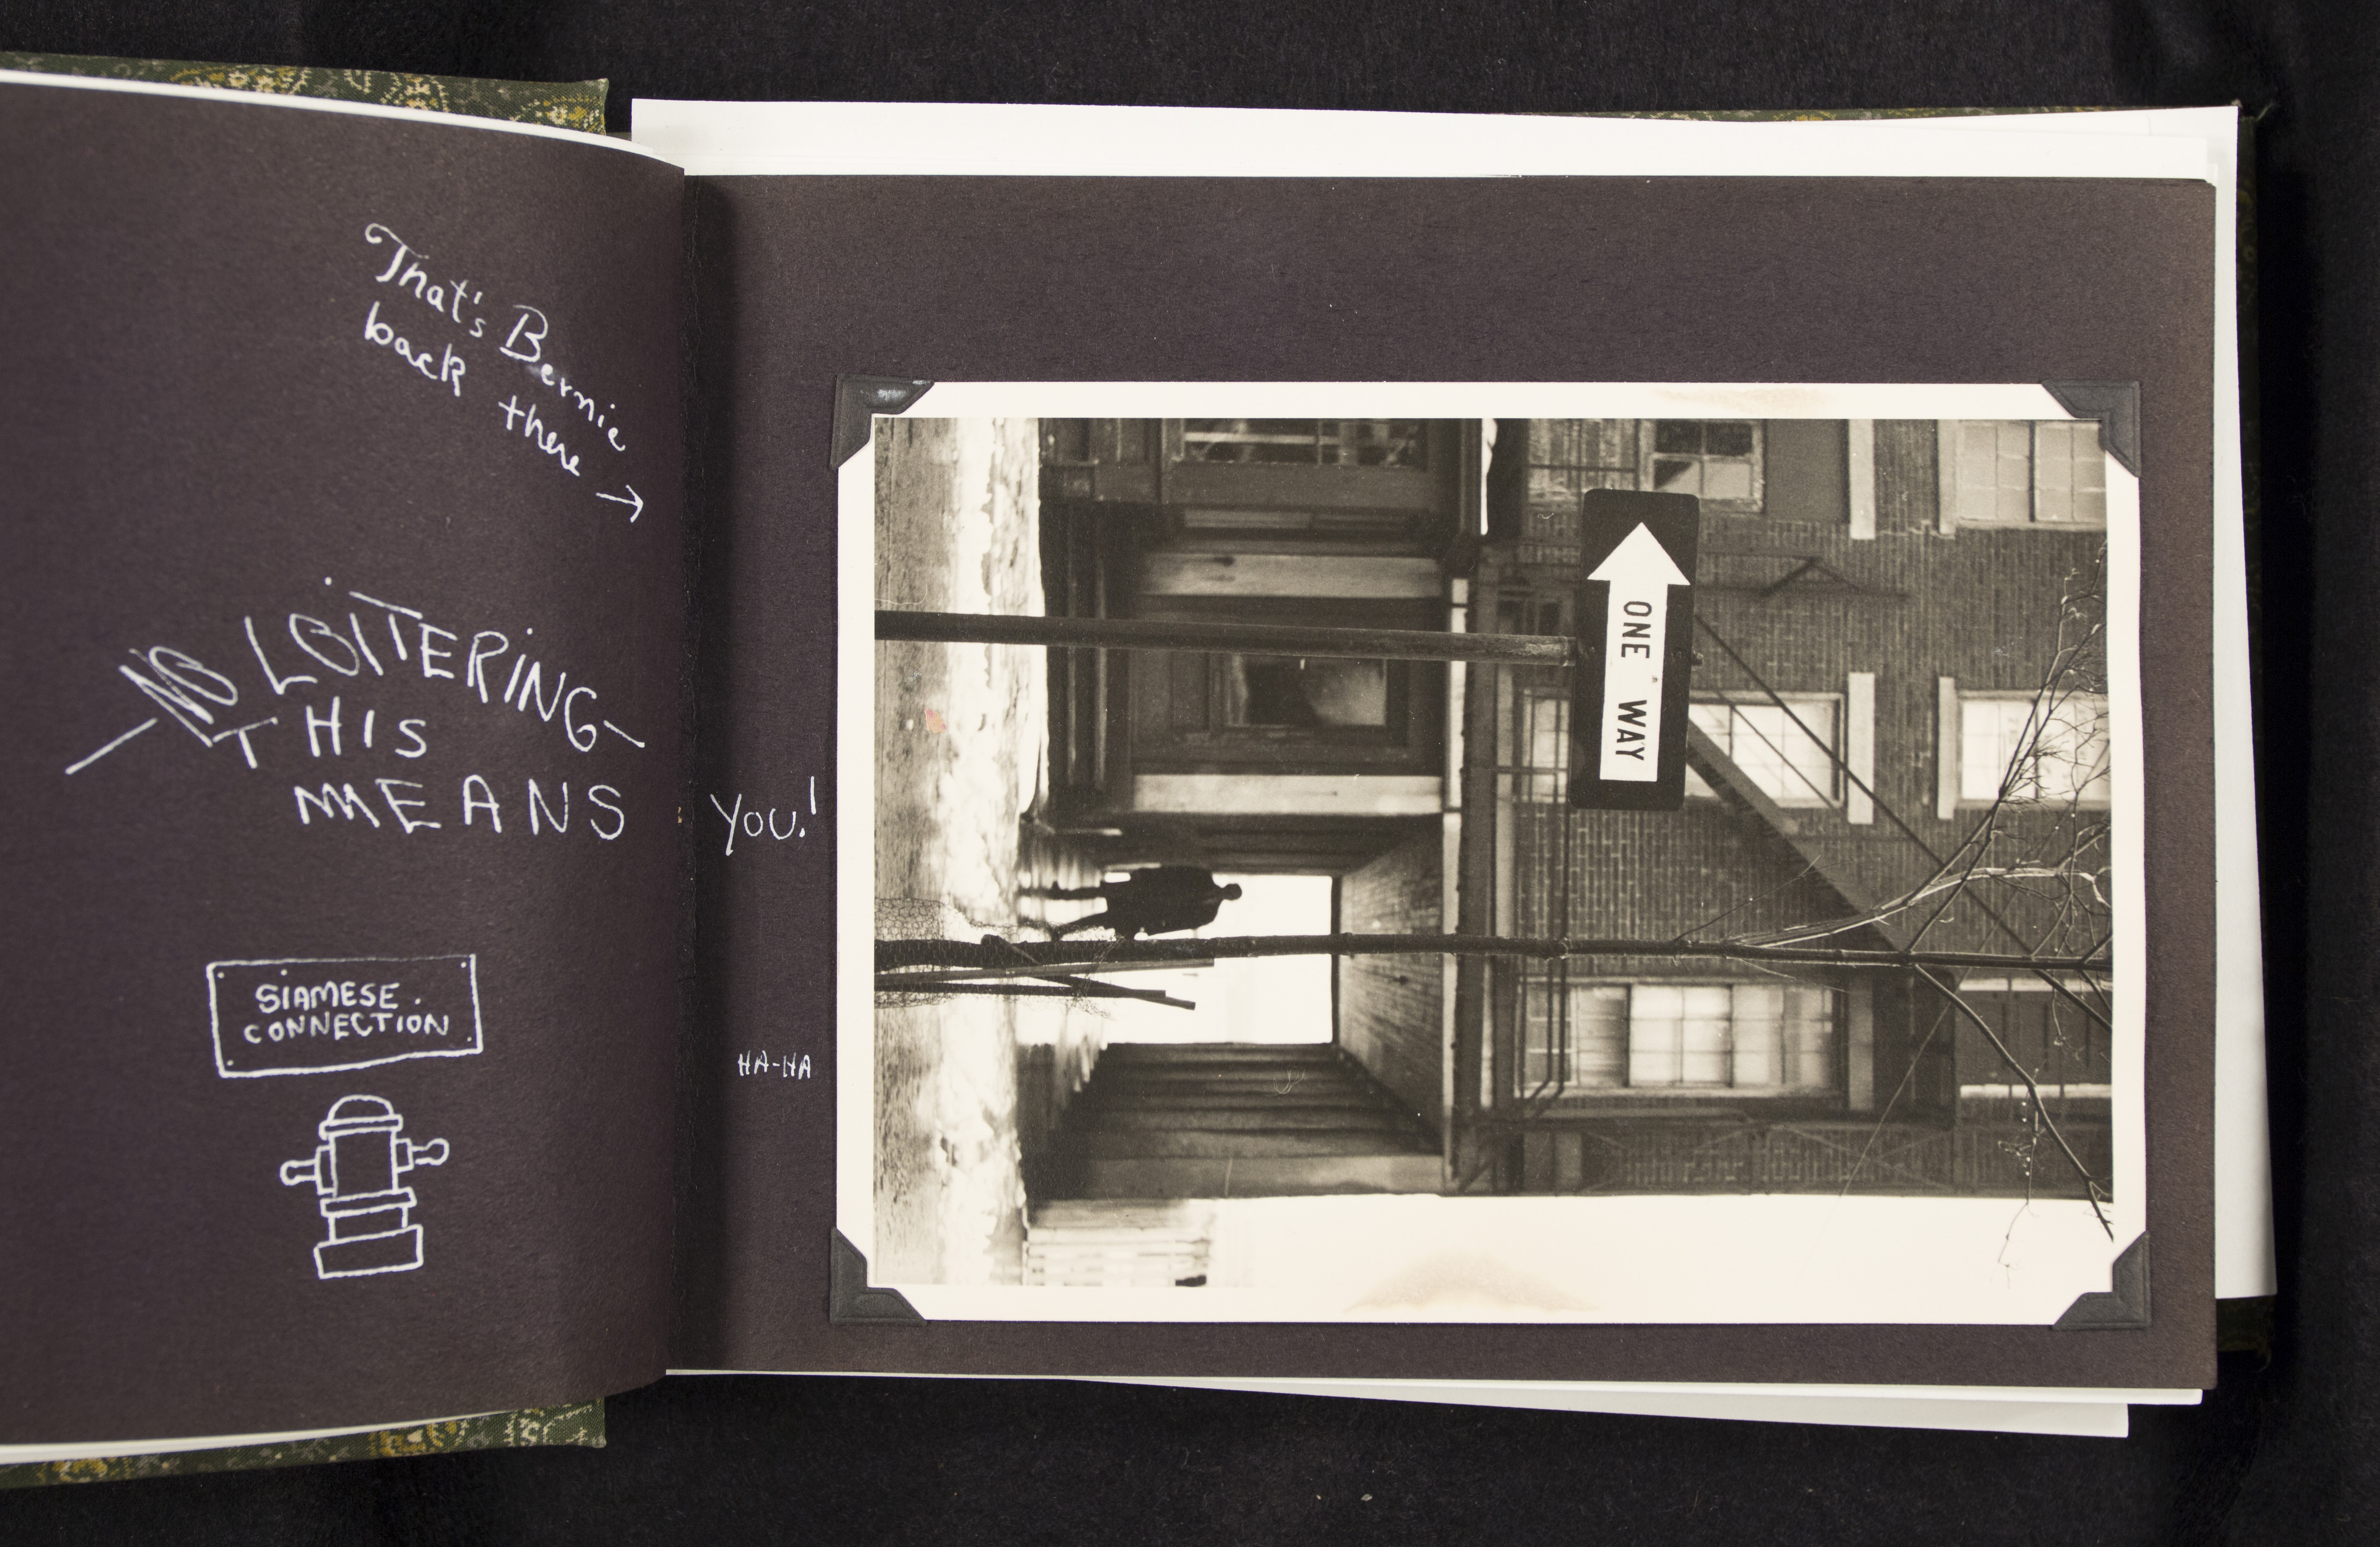 That's Bernie
back there →
NO LOITERING-
THIS
MEANS YOU!
SIAMESE
CONNECTION
HA-HA
ONE WAY